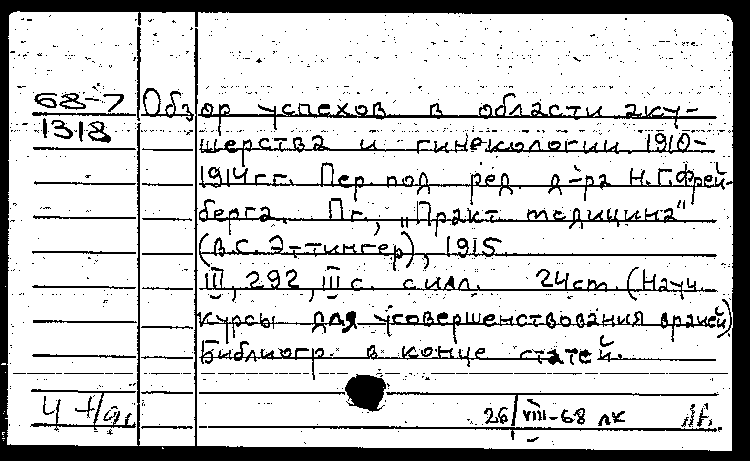 68-7
1318
Обзор успехов в области аку-
шерства и гинекологии 1910-
1914 г.г. Пер. под ред. д-ра Н.Г.Фрей-
берга. Пг., „Практ. медицина"
(В.С. Эттингер), 1915.
III, 292, III с. с илл. 24 см. (Науч.
курсы для усовершенствования врачей)
Библиогр. в конце статей.
26/VIII-68 лк